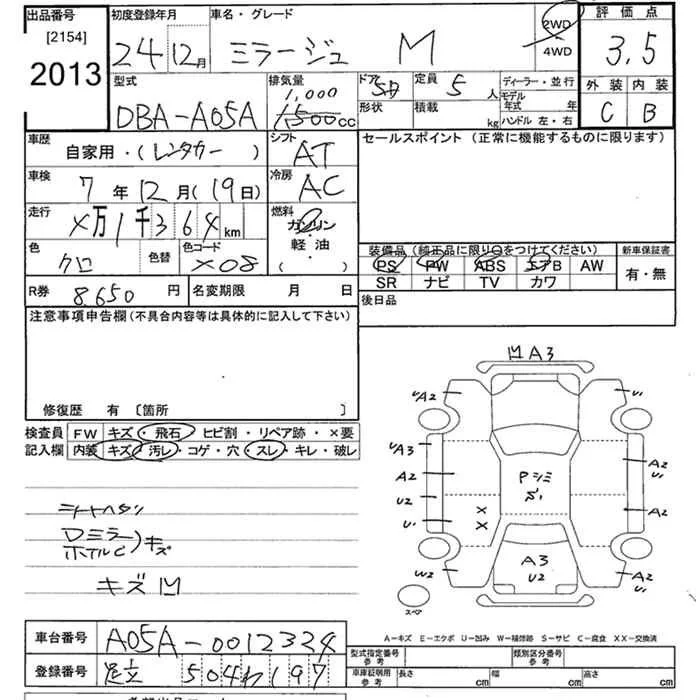 出品番号 初度登録年月 車名・グレード 2WD 4WD 評価点
[2154]
2013
24 12月 ミラージュ M 3.5
型式 排気量 ドア 5D 定員 5人 ディーラー・並行 外装 内装
DBA-A05A 1,000 1500cc 形状 積載 kg モデル年式 年 C B
ハンドル 左・右
車歴 シフト セールスポイント (正常に機能するものに限ります)
自家用・(レンタカー) AT
車検 7年12月(19日) 冷房 AC
走行 ×万1千364km 燃料 ガソリン
軽・油
( )
色 クロ 色替 色コード X08
装備品 (純正品に限り○をつけてください) 新車保証書
PS PW ABS エアB AW 有・無
SR ナビ TV カワ
R券 8,650円 名変期限 月 日 後日品
注意事項申告欄 (不具合内容等は具体的に記入して下さい)
修復歴 有 〔箇所 〕
検査員 記入欄
FW キズ・飛石・ヒビ割・リペア跡・×要
内装 キズ・汚レ・コゲ・穴・スレ・キレ・破レ
シートヘタリ
Dミラー
ホイルC キズ
キズ凹
凹A3
UA2 U1
UA3
A2
U2
U1
W2
Pシミ
A2
U1
A2
A2
U1
× ×
A3
U2
スペア
A-キズ E-エクボ U-凹み W-補修跡 S-サビ C-腐食 XX-交換済
車台番号 A05A-0012324
登録番号 足立 504わ197
型式指定番号 参考 類別区分番号 参考
車庫証明用 参考 長さ cm 幅 cm 高さ cm